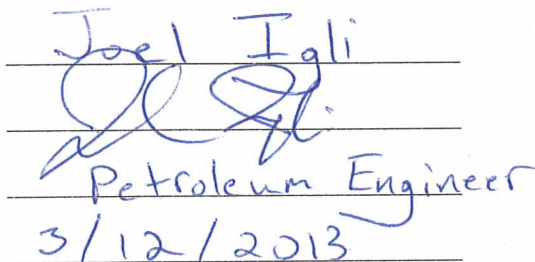 Joel Igli
Petroleum Engineer
3/12/2013